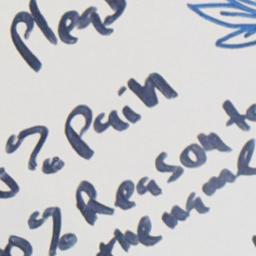 Pleas
% pain
% Reason to
the name